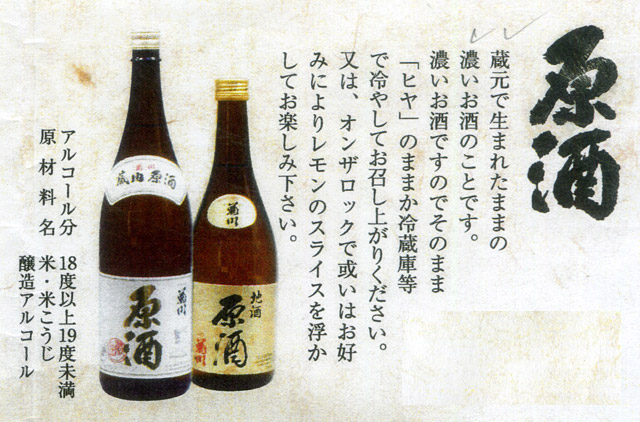 原酒
蔵元で生まれたままの
濃いお酒のことです。
濃いお酒ですのでそのまま
「ヒヤ」のままか冷蔵庫等
で冷やしてお召し上がりください。
又は、オンザロックで或いはお好
みによりレモンのスライスを浮か
してお楽しみ下さい。
菊川
地酒
原酒
菊川
蔵内原酒
菊川
原酒
アルコール分 18度以上19度未満
原材料名 米・米こうじ
醸造アルコール